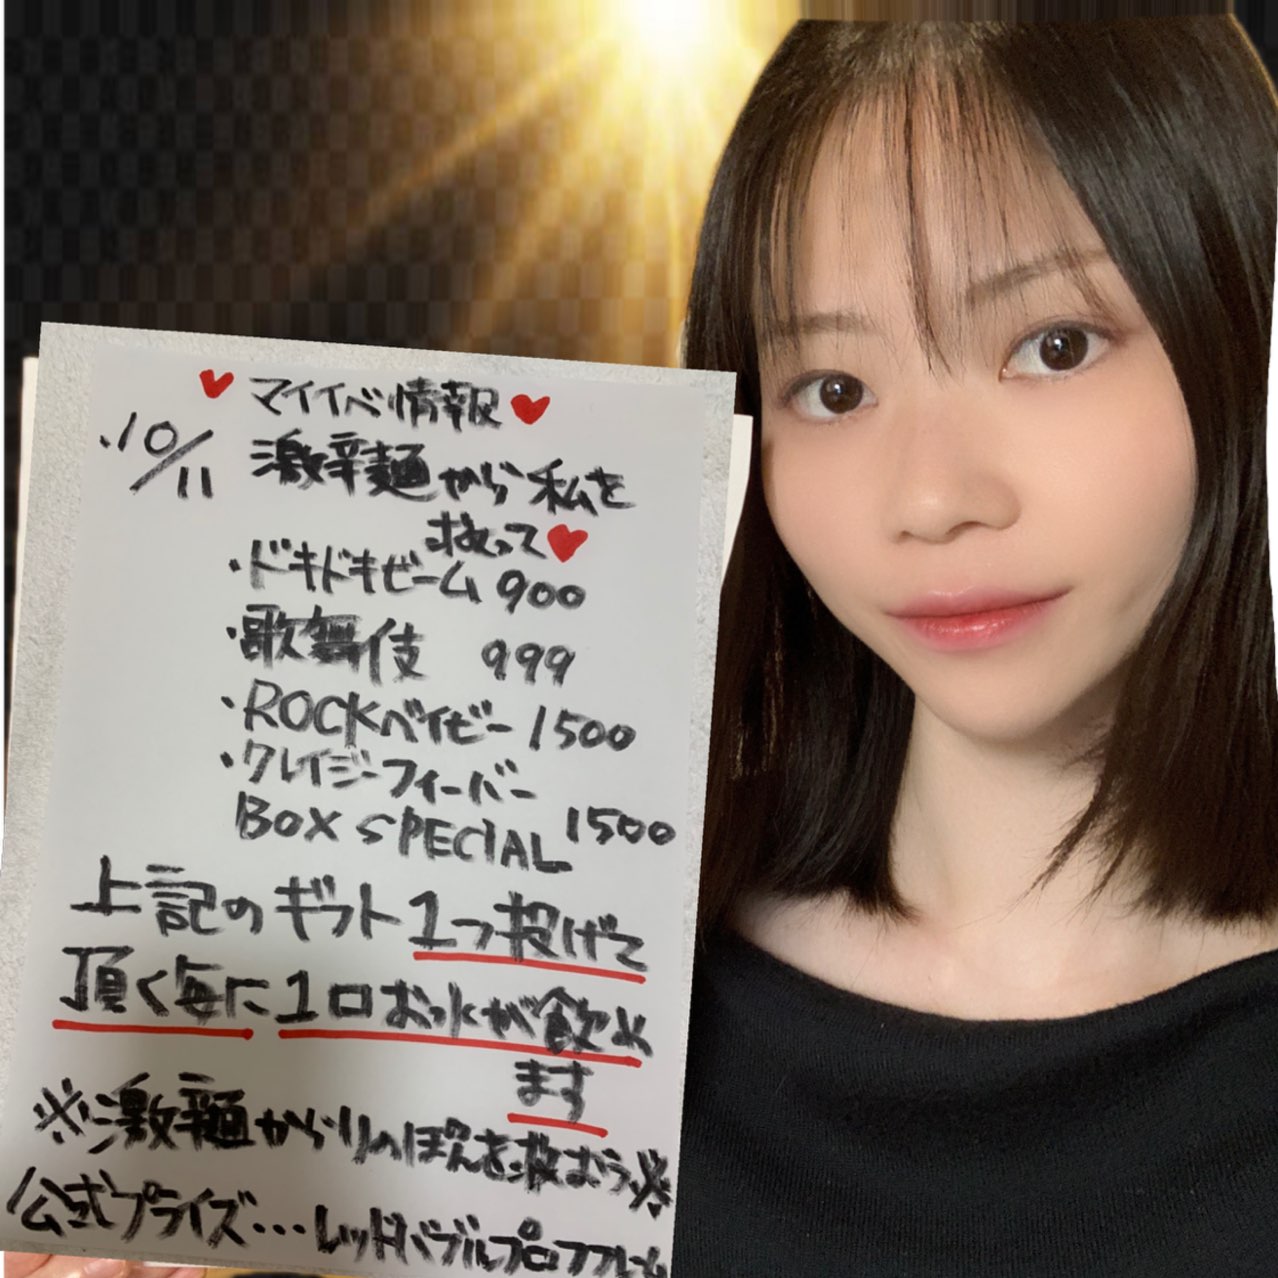 ♥ マイイベ情報 ♥
・10/11 激辛麺から私を
救って♥
・ドキドキゲーム 900
・歌舞伎 999
・ROCKベイビー 1500
・クレイジーフィーバー
BOX SPECIAL 1500
上記のギフト1つ投げて
頂く毎に1口お水が飲め
ます
※激辛麺からりのぽんを救おう※
公式プライズ…レッドバブルプロフフレーム